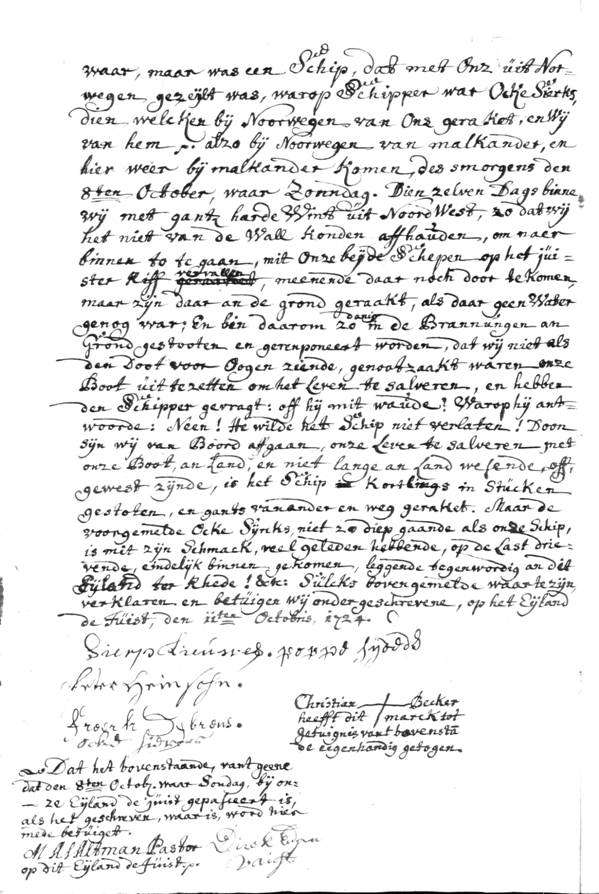 waar, maar was een Schip, dat met Onz uit Nor-
wegen gezeylt was, warop Schipper war Ocke Sierks,
dien welcken bij Noorwegen van Onz geraket, en Wij
van hem alzo bij Noorwegen van malkander, en
hier weer bij malkander Komen, des smorgens den
8ten October, waar Zonndag. Dien zelven Dags binne
wij met gantz harde Wint uit Noord West, zo dat wij
het niet van de Wall konden affhauden, om naer
binnen to te gaan, mit Onze beyde Schepen op het jüi-
ster Riff vervallen, meenende daar noch door te komen,
maar zijn daar an de grond geraakt, als daar geen Water
genog war; En bin daarom zo danig in de Brannüngen an
Grond gestooten en gereponeert worden, dat wij niet als
den Doot voor Oogen ziende, genootzaakt waren onze
Boot uit te zetten om het Leven te salveren, en hebben
den Schipper gevragt: off hij mit waude! Warop hij ant-
woorde: Neen! He wilde het Schip niet verlaten! Doon
sijn wij van Boord affgaan, onze Leven te salveren met
onze Boot, an Land, en niet lange an Land wesende, off
gewest zijnde, is het Schip Kortlings in Stücken
gestoten, en gants van ander en weg geraket. Maar de
voorgemelde Ocke Sijrcks, niet zo diep gaande als onze Schip,
is mit zijn Schmack, veel geleden hebbende, op de Last drie-
vende, eindelijk binnen gekomen, leggende tegenwordig an dit
Eyland ter Rhede! &c: Sülcks bovengemelde waar te zijn,
verklaren en betüigen wij ondergeschrevene, op het Eyland
de Juist, den 11ten Octobris, 1724.
poppe
Peter Heinsohn.
Freerk Sybrens.
Ocke
Christian + Becker
heefft dit marck tot
getuignis vant bovenstā
de eigenhandig getogen.
Dat het bovenstaande, vant geene
dat den 8ten Octobr. waar Sondag, bij on-
ze Eyland de Juist gepasseert is,
als het geschreven, waar is, word hier
mede betuiget.
Altman Pastor
op dit Eyland de Juist.
Dirck
Vaigt